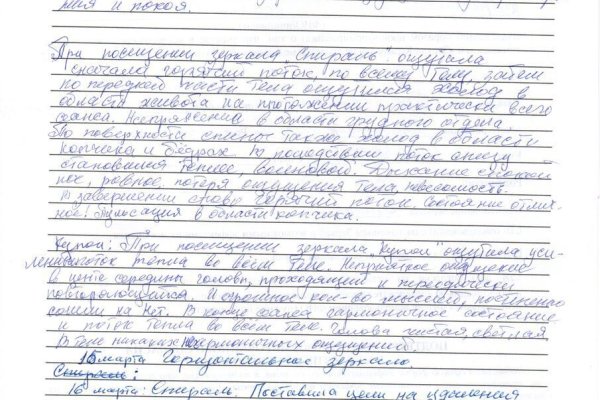 ния и покоя.
При посещении зеркала „Спираль" ощущала
сначала горячий поток, по всему телу, затем
по передней части тела ощущался холод в
области живота на протяжении практически всего
сеанса. Напряжение в области грудного отдела.
По поверхности спины также холод в области
копчика и бёдрах. В последствии поток снизу
становился теплее, волновой. Дыхание спокой
ное, ровное, потеря ощущения тела, невесомость.
В завершении снова горячий поток. Состояние отлич-
ное. Пульсация в области копчика.
Купол: При посещении зеркала „Купол" ощутила уси-
ление поток тепла во всём теле. Неприятное ощущение
в центе середины головы, проходящий и периодически
повторяющийся. И огромное кол-во мыслей, постепенно
сошли на нет. В конце сеанса гармоничное состояние
и поток тепла во всём теле. Голова чистая, светлая,
в теле никаких негармоничных ощущений.
15 марта Горизонтальное зеркало.
Спираль:
16 марта: Спираль. Поставила цели на удаления